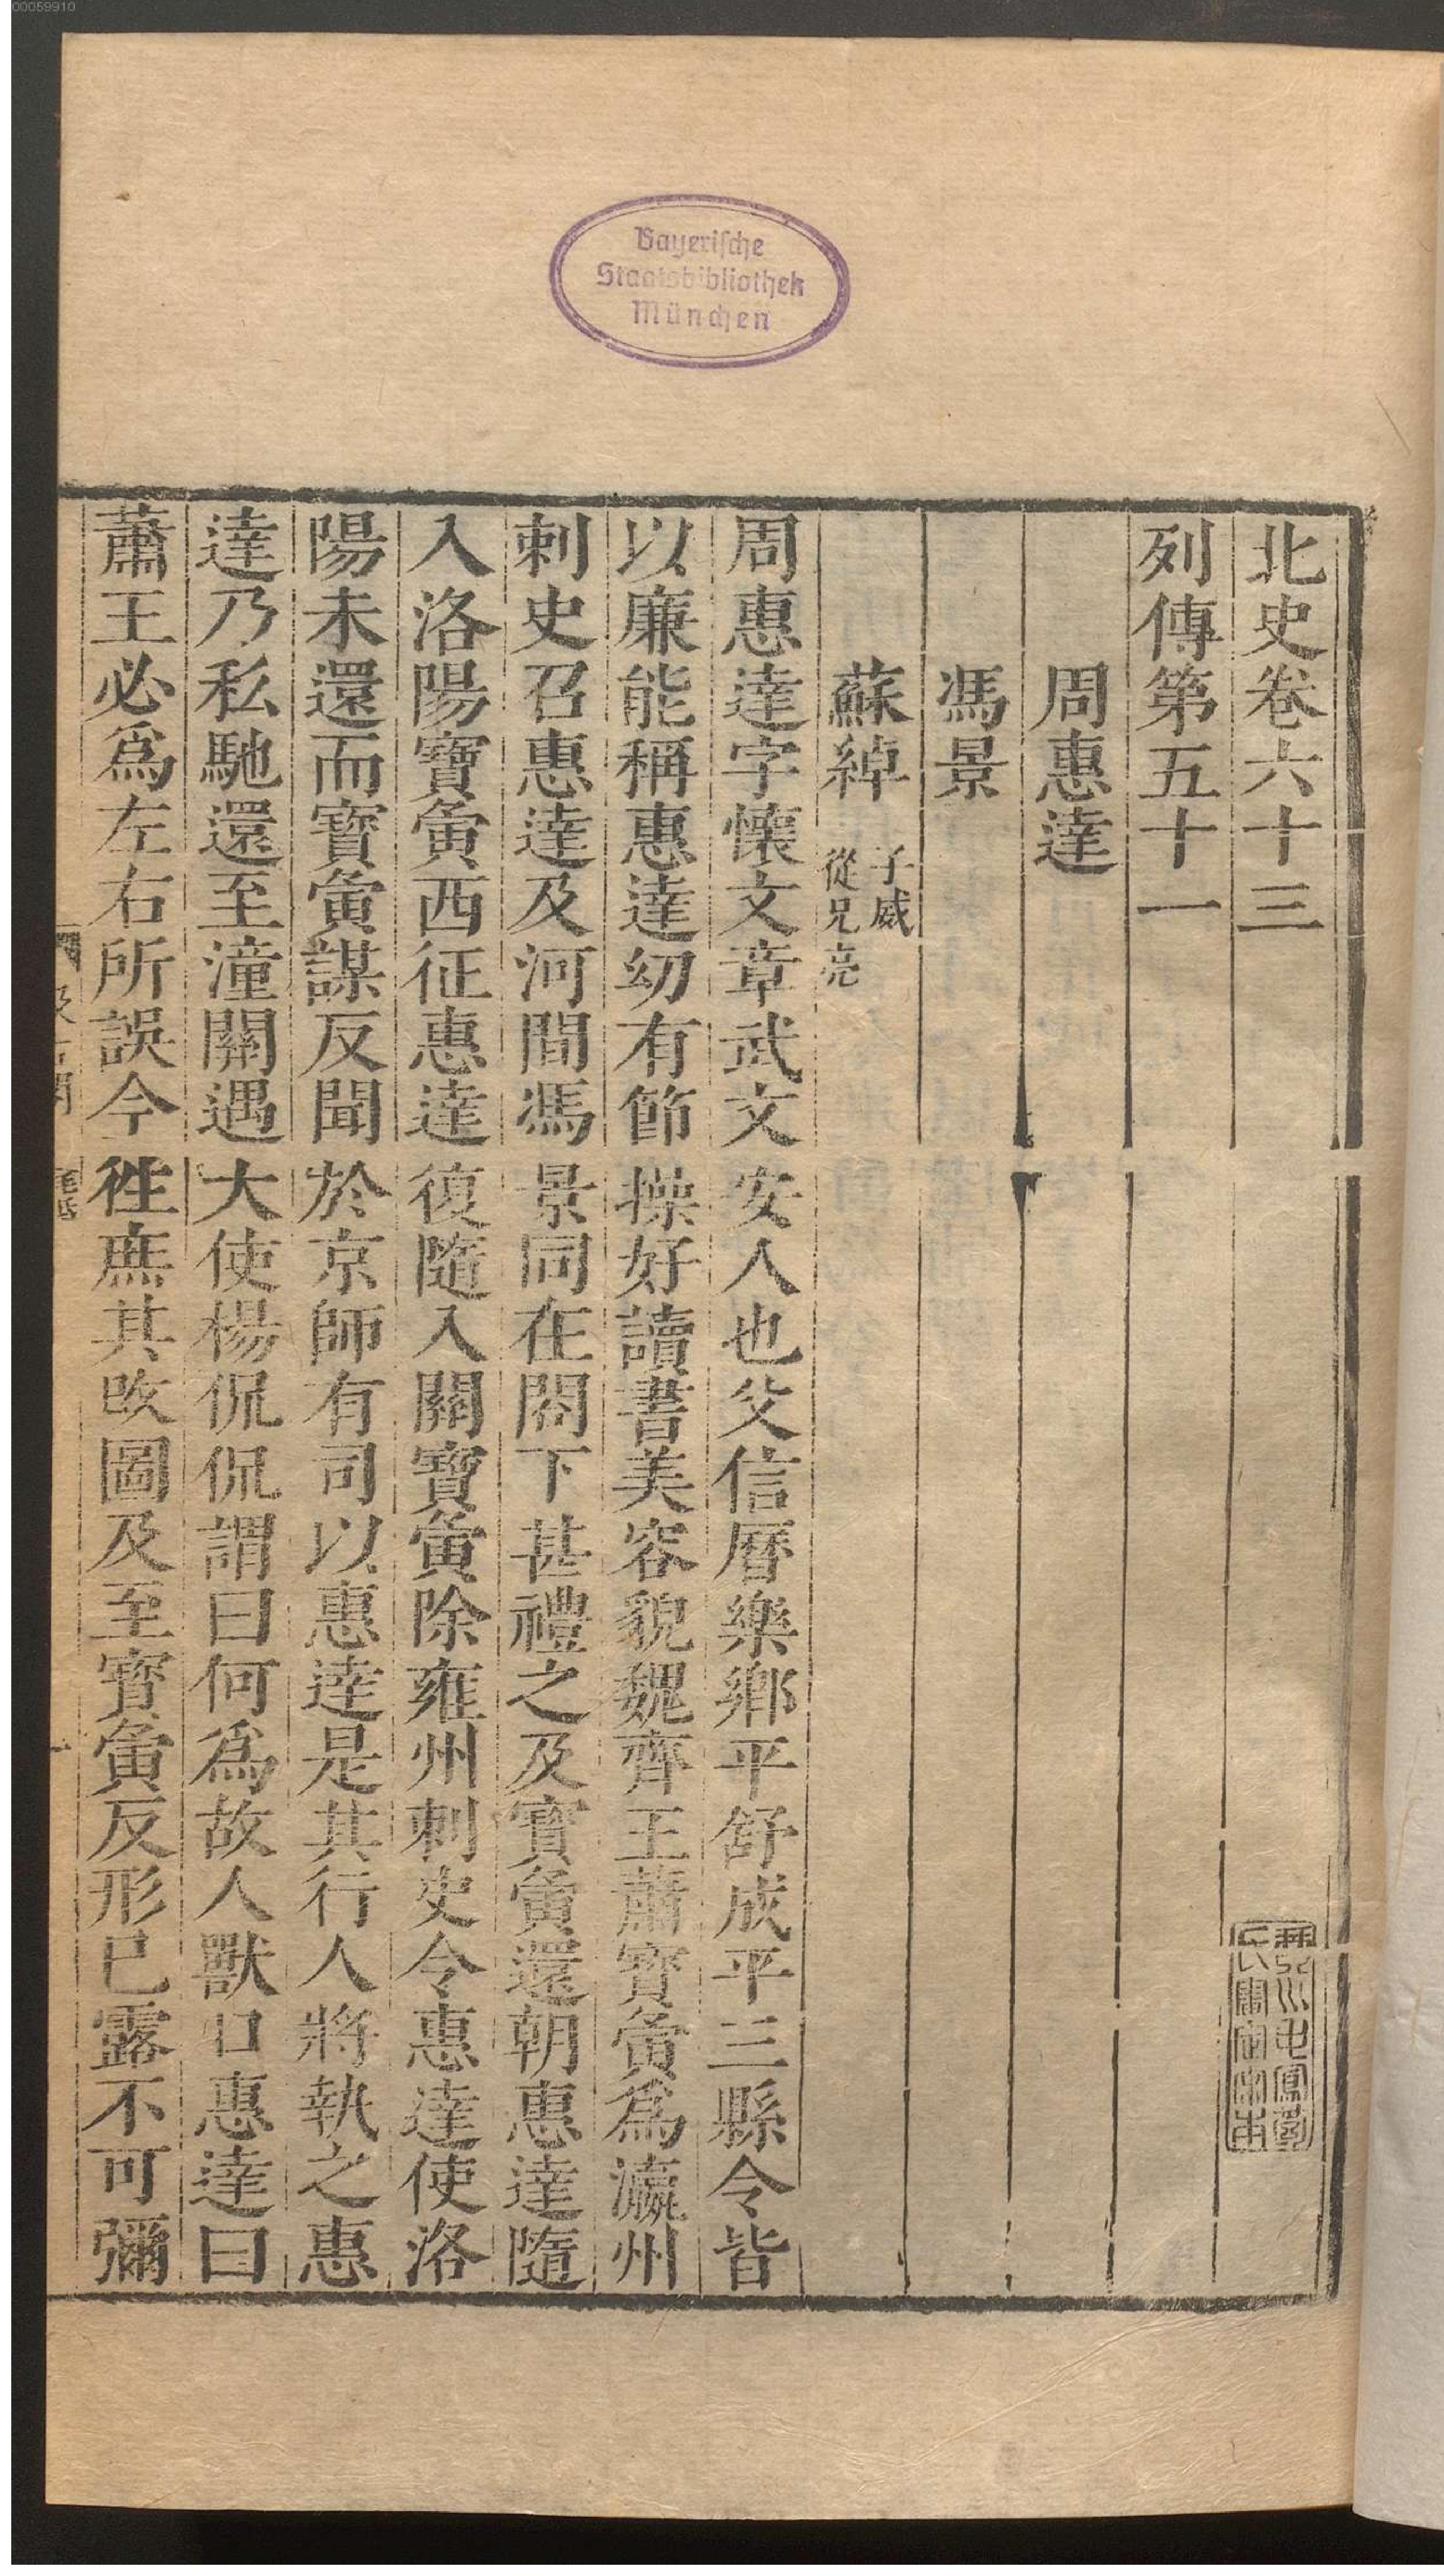 00059910
Bayerische
Staatsbibliothek
München
北史卷六十三
列傳第五十一
周惠達
馮景
蘇綽 子威 從兄亮
周惠達字懷文章武文安人也父信歷樂鄉平舒成平三縣令皆
以廉能稱惠達幼有節操好讀書美容貌魏齊王蕭寶夤爲瀛州
刺史召惠達及河間馮景同在閤下甚禮之及寶夤還朝惠達隨
入洛陽寶夤西征惠達復隨入關寶夤除雍州刺史令惠達使洛
陽未還而寶夤謀反聞於京師有司以惠達是其行人將執之惠
達乃私馳還至潼關遇大使楊侃侃謂曰何爲故人獸口惠達曰
蕭王必爲左右所誤今徃庶其改圖及至寶夤反形已露不可彌